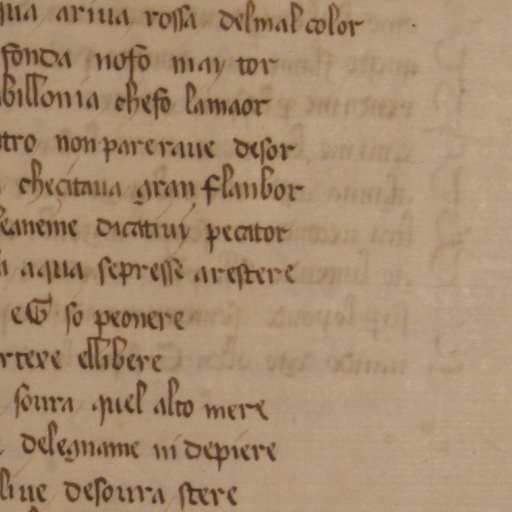 qua ariua rossa delmal color
fonda nofo may tor
billonia chefo lamaor
tro non pareraue desor
checitaua gran flanbor
eaneme dicatiui pecator
a aqua sepresse arestere
e so peonere
rtere ellibere
soura quel alto mere
delegname in depiere
liue desoura stere